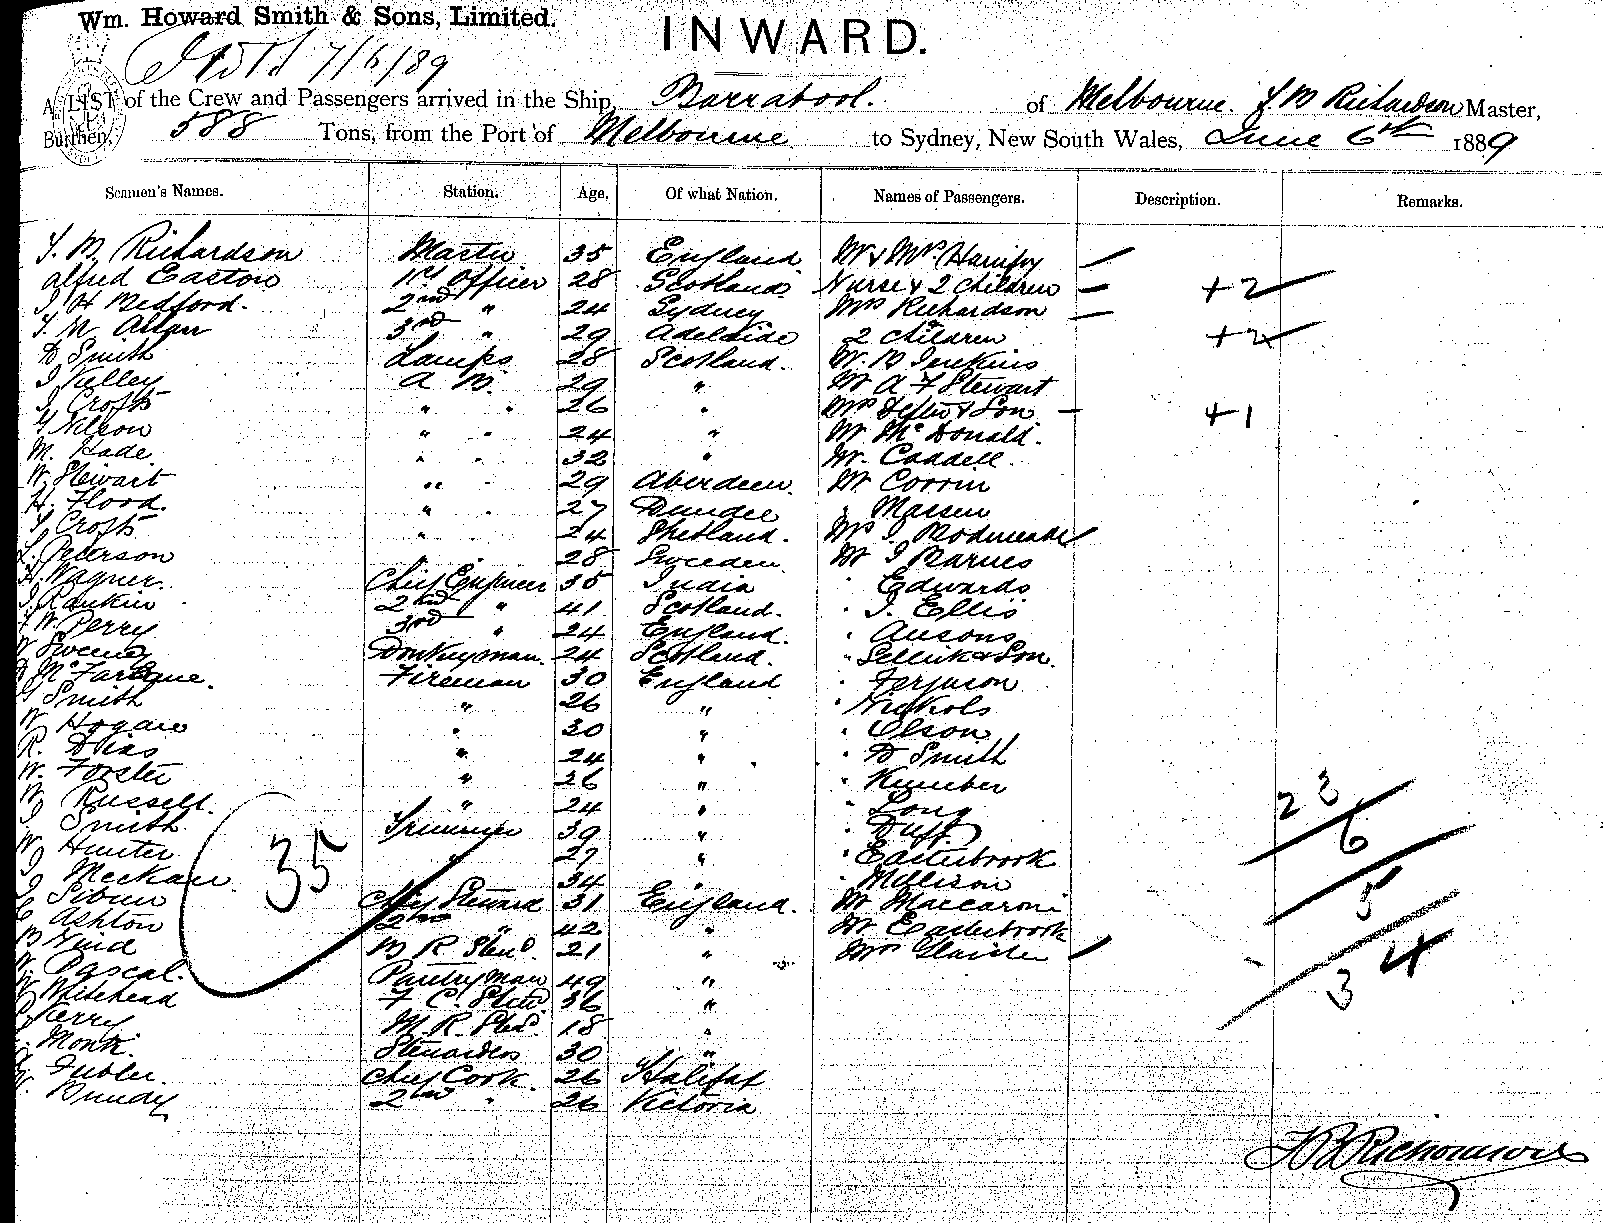 Wm. Howard Smith & Sons, Limited.
INWARD.
7/6/89
A LIST of the Crew and Passengers arrived in the Ship, Barrabool. of Melbourne. Richardson Master,
Burthen, 588 Tons, from the Port of Melbourne to Sydney, New South Wales, June 6th 1889
Seamen's Names. Station. Age. Of what Nation. Names of Passengers. Description. Remarks.
M. Richardson Master 35 England Mr & Mrs
Alfred Easton 1st Officer 28 Scotland Nurse & 2 Children +2
H Bedford. 2nd " 24 Sydney Mrs Richardson
3rd " 29 Adelaide 2 Children +2
D Smith Lamps 28 Scotland. W. B Jenkins
J Kelley A B. 29 " Mr A F Stewart
J Crofts " " 26 " Mrs & Son +1
G Nelson " " 24 " Mr McDonald.
M. Hade " " 32 " Mr. Caddell.
W. Stewart " " 29 Aberdeen. Mr Corrin
H. Flood. " " 27 Dundee
Crofts " 24 Shetland. Mrs J
L. Peterson 28 Sweeden. Mr J Barnes
H Wagner. Chief Engineer 35 India " Edwards
J Rankin 2nd " 41 Scotland. " J. Ellis
W. Perry 3rd " 24 England. " Ansons
W Sweeney Donkeyman. 24 Scotland. " & Son.
D McFarlane. Fireman 30 England " Ferguson
G Smith " 26 " " Nichols
W Hogan " 30 " " Olson
R. Dias " 24 " " D Smith
W. Forster " 26 " "
W Russell. " 24 " " Long
J Smith. Trimmer 39 " " Duff
W Hunter 27 " " Easterbrook
J 34 " Millison
Chief Steward 31 England. Mr Maccaroni
E Ashton 2nd " 42 " Mr Easterbrook
B Wind B R Stew'd. 21 " Mrs
W. Pascal. Pantryman 49 "
W Whitehead F C. Stew'd 36 "
Perry M. R. Stew'd. 18 "
Monk. Stewardess 30 "
Chief Cook. 26 Halifax
Bundy 2nd " 26 Victoria
35
23
6
5
34